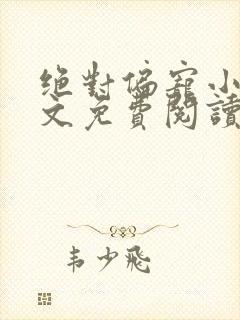 绝對偏寵小
文免費閱讀
韦少飛